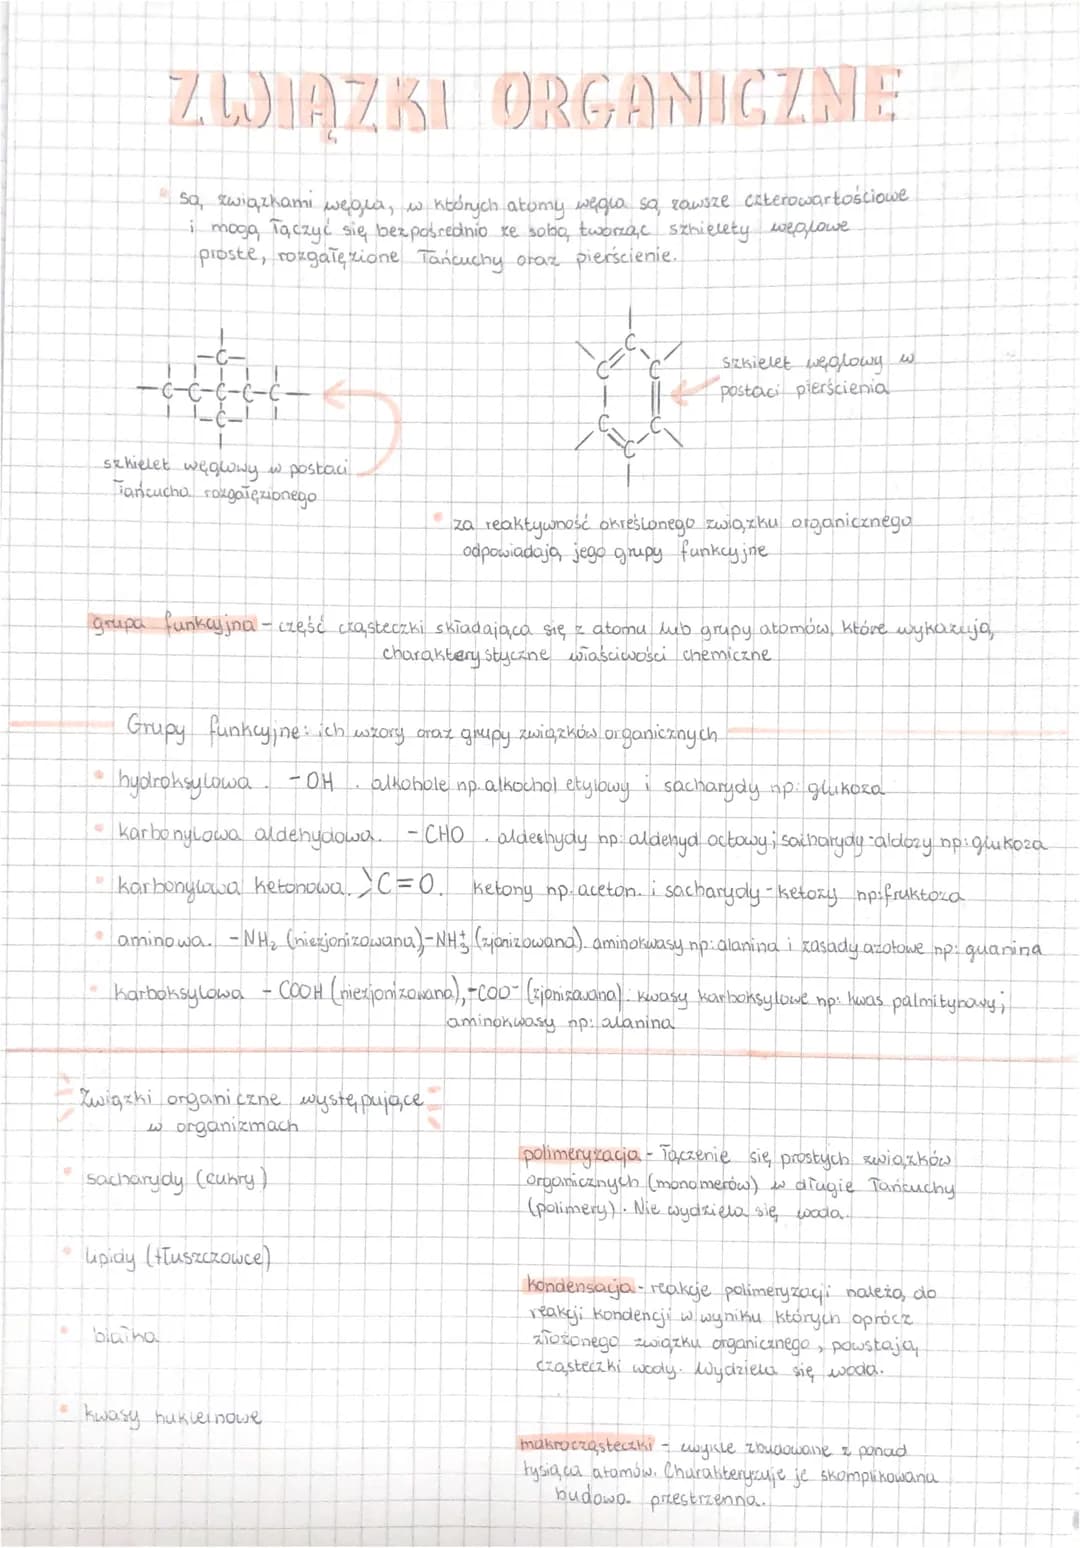 ZWIĄZKI ORGANICZNE
są związkami węgla, w których atomy węgla są zawsze czterowartościowe
i mogą łączyć się bezpośrednio ze sobą tworząc szkielety węglowe
proste, rozgałęzione łańcuchy oraz pierścienie.
-C-
-C-C-C-C-C-
-C-
szkielet węglowy w postaci
łańcucha rozgałęzionego
C
C C
C C
C
szkielet węglowy w
postaci pierścienia
za reaktywność określonego związku organicznego
odpowiadają jego grupy funkcyjne
grupa funkcyjna - część cząsteczki składająca się z atomu lub grupy atomów, które wykazują
charakterystyczne właściwości chemiczne
Grupy funkcyjne: ich wzory oraz grupy związków organicznych
hydroksylowa. -OH. alkohole np. alkochol etylowy i sacharydy np: glukoza
karbonylowa aldehydowa. -CHO. aldeehydy np: aldehyd octowy; sacharydy-aldozy np: glukoza
karbonylowa ketonowa. >C=O. ketony np. aceton. i sacharydy-ketozy np: fruktoza
aminowa. -NH₂ (niezjonizowana), -NH₃⁺ (zjonizowana). aminokwasy np: alanina i zasady azotowe np: guanina
karboksylowa -COOH (niezjonizowana), -COO⁻ (zjonizowana): kwasy karboksylowe np: kwas palmitynowy;
aminokwasy np: alanina
Związki organiczne występujące
w organizmach
sacharydy (cukry)
lipidy (tłuszczowce)
białka
kwasy nukleinowe
polimeryzacja - łączenie się prostych związków
organicznych (monomerów) w długie łańcuchy
(polimery). Nie wydziela się woda.
kondensacja - reakcje polimeryzacji należą do
reakcji kondencji w wyniku których oprócz
złożonego związku organicznego, powstają
cząsteczki wody. Wydziela się woda.
makrocząsteczki - zwykle zbudowane z ponad
tysiąca atomów. Charakteryzuje je skomplikowana
budowa przestrzenna.